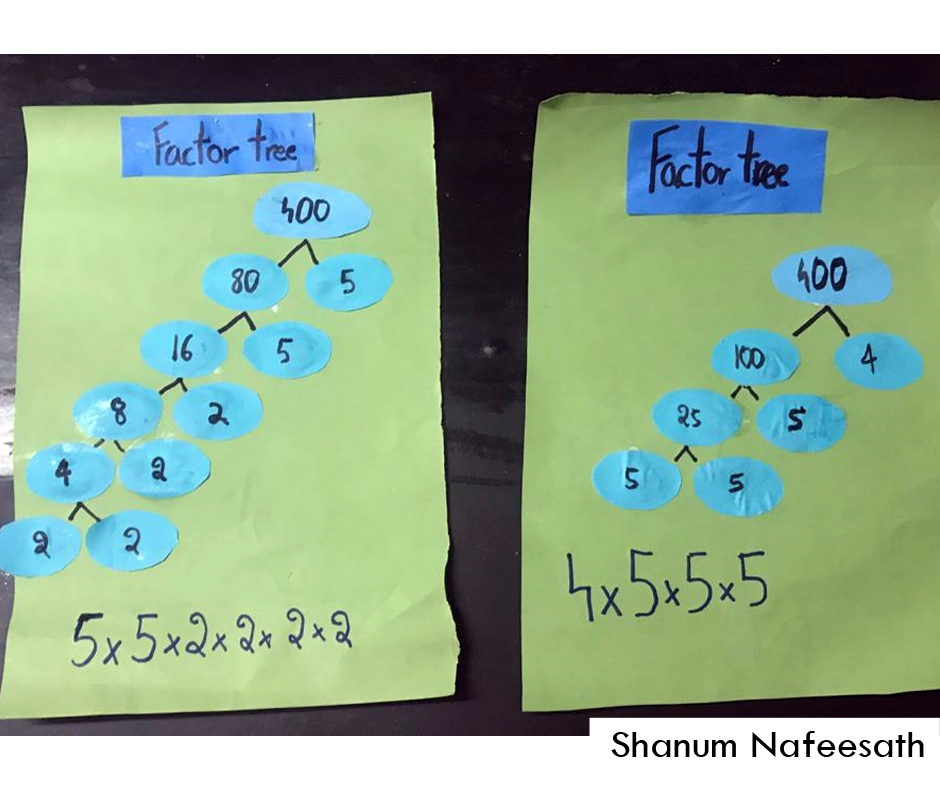 Factor tree
400
80 5
16 5
8 2
4 2
2 2
5 x 5 x 2 x 2 x 2 x 2
Factor tree
400
100 4
25 5
5 5
4 x 5 x 5 x 5
Shanum Nafeesath